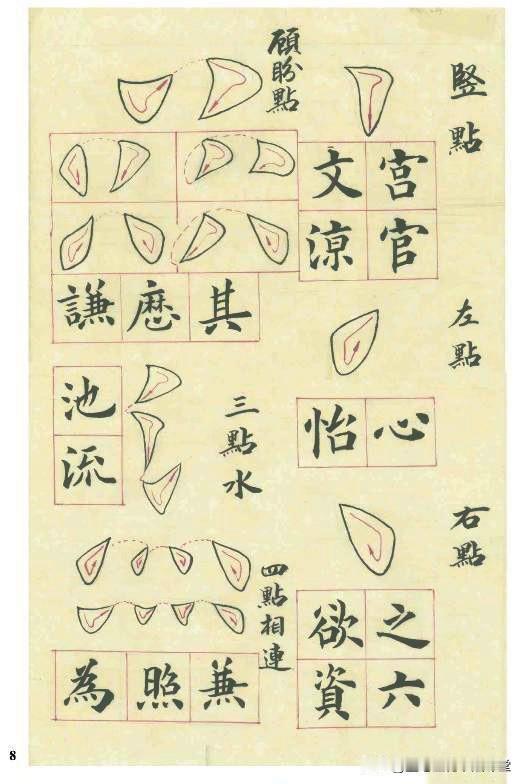 竪點
宮官
文涼
左點
心怡
右點
之六
欲資
顧盼點
其
謙
三點水
池流
四點相連
兼照為
8